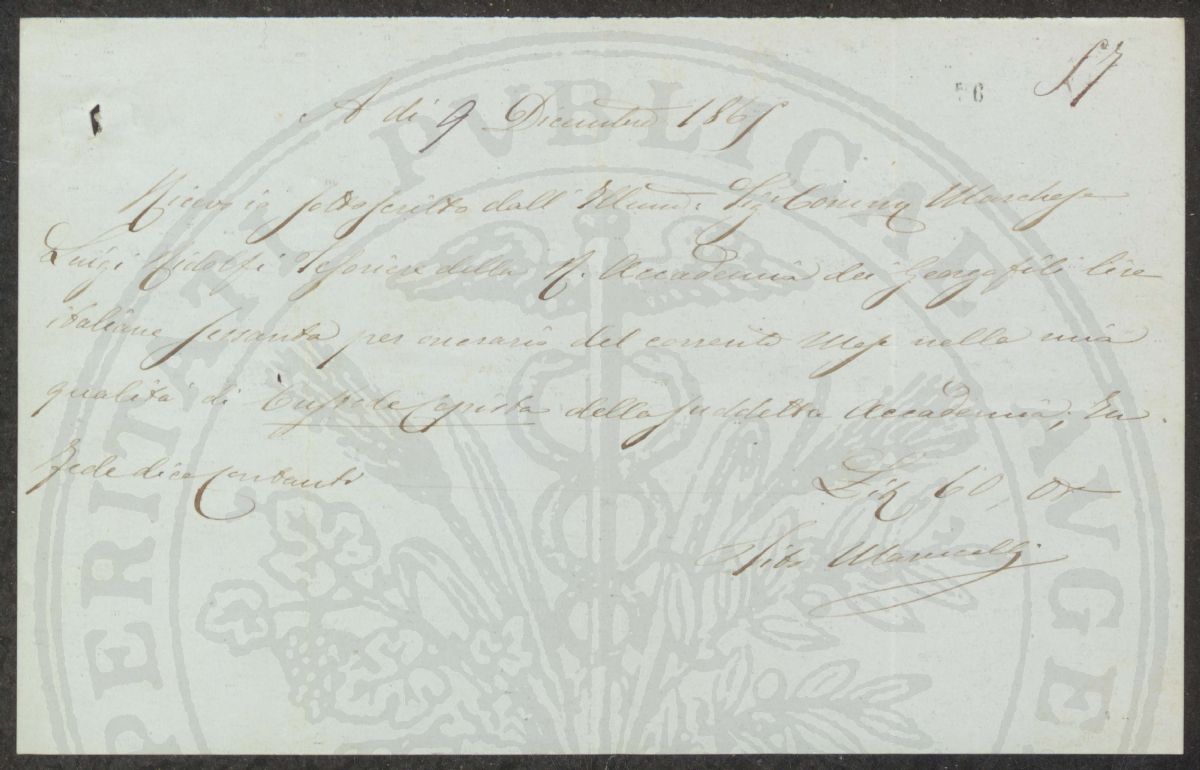 57
56
A dì 9 Dicembre 1865
Ricevo io sottoscritto dall' Illum: Sig. Comm. Marchese
Luigi Ridolfi Tesoriere della R. Accademia dei Georgofili lire
italiane sessanta per onorario del corrente Mese nella mia
qualità di Custode Copista della suddetta Accademia, In
fede dico contanti
Lir 60, 00
Vito
PERITATI PUBLICAE